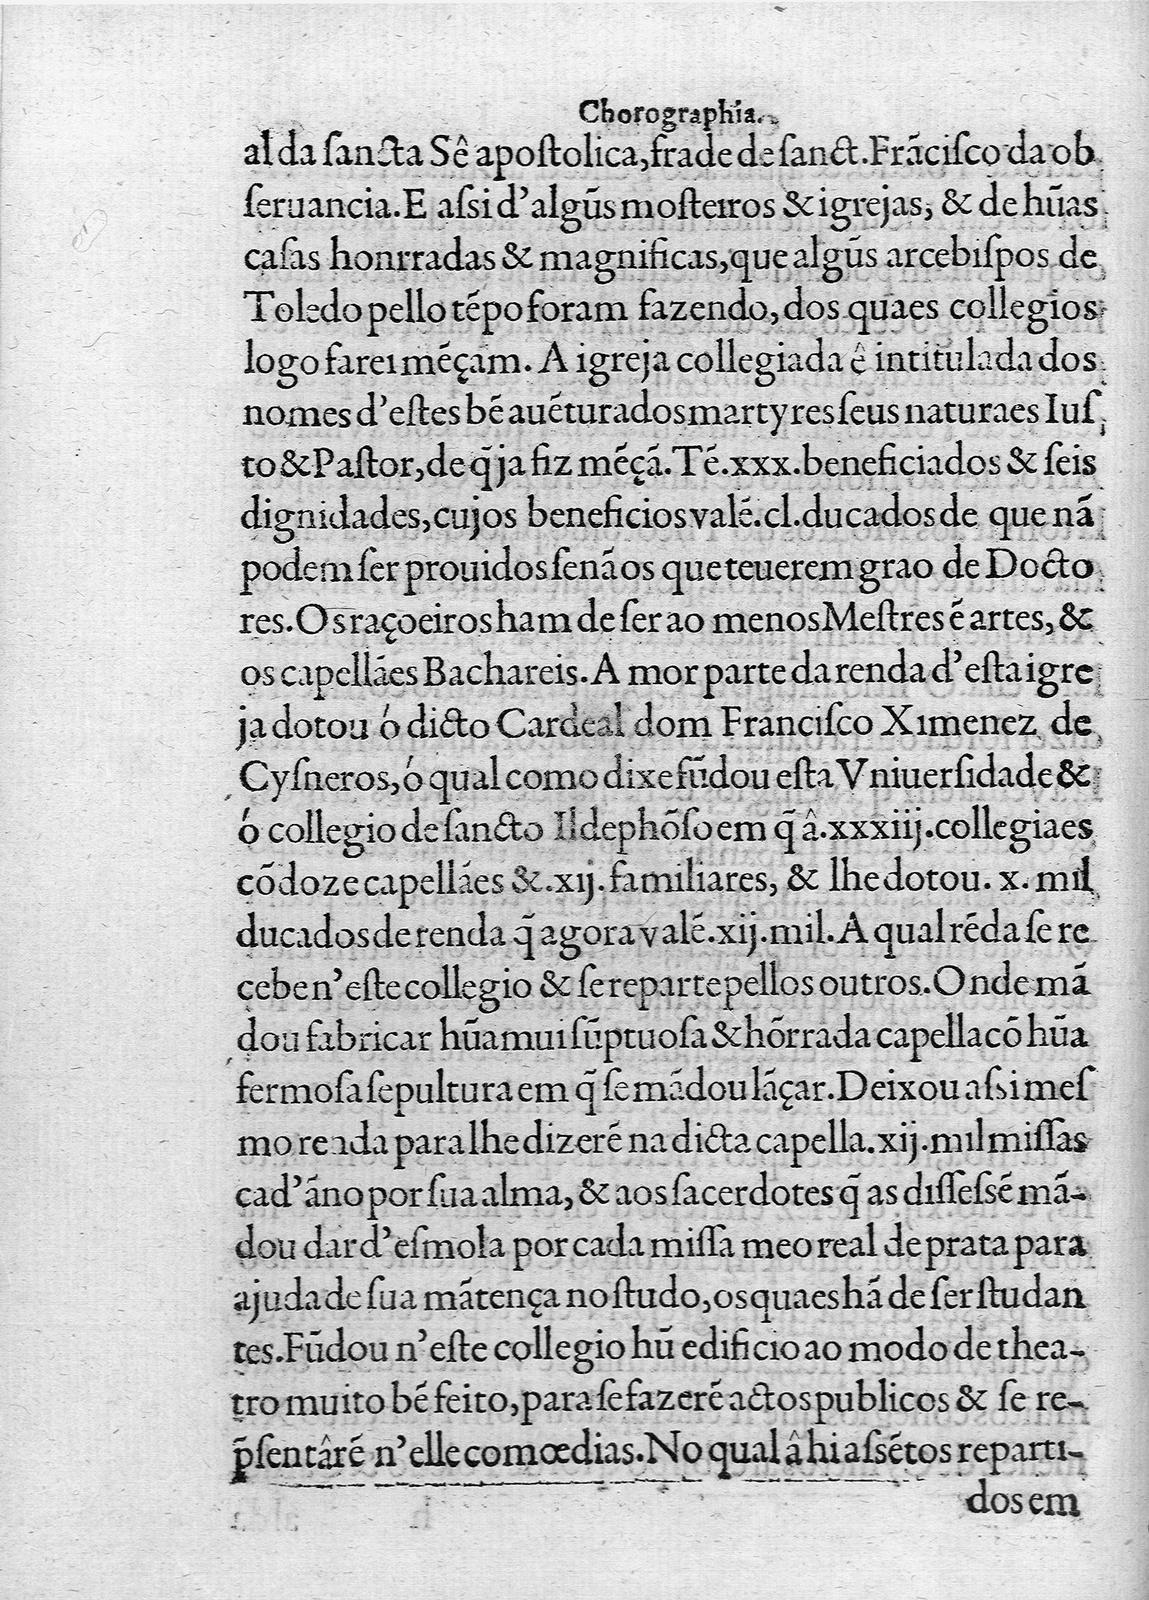 Chorographia.
al da ſancta Sê apoſtolica, frade de ſanct. Frãciſco da ob
ſeruancia. E aſsi d'algũs moſteiros & igrejas, & de hũas
caſas honrradas & magnificas, que algũs arcebiſpos de
Toledo pello tẽpo foram fazendo, dos quaes collegios
logo farei mẽçam. A igreja collegiada ê intitulada dos
nomes d'eſtes bẽ auẽturados martyres ſeus naturaes Iuſ
to & Paſtor, de q̃ ja fiz mẽçã. Tẽ .xxx. beneficiados & ſeis
dignidades, cujos beneficios valẽ .cl. ducados de que nã
podem ſer prouidos ſenã os que teuerem grao de Docto
res. Os raçoeiros ham de ſer ao menos Meſtres ẽ artes, &
os capellães Bachareis. A mor parte da renda d'eſta igre
ja dotou ó dicto Cardeal dom Franciſco Ximenez de
Cyſneros, ó qual como dixe fũdou eſta Vniuerſidade &
ó collegio de ſancto Ildephõſo em q̃ â .xxxiij. collegiaes
cõ doze capellães & .xij. familiares, & lhe dotou .x. mil
ducados de renda q̃ agora valẽ .xij. mil. A qual rẽda ſe re
cebe n'eſte collegio & ſe reparte pellos outros. Onde mã
dou fabricar hũa mui ſũptuoſa & hõrrada capella cõ hũa
fermoſa ſepultura em q̃ ſe mãdou lãçar. Deixou aſsi meſ
mo renda para lhe dizerẽ na dicta capella .xij. mil miſſas
cad'ãno por ſua alma, & aos ſacerdotes q̃ as diſſeſsẽ mã-
dou dar d'eſmola por cada miſſa meo real de prata para
ajuda de ſua mãtença no ſtudo, os quaes hã de ſer ſtudan
tes. Fũdou n'eſte collegio hũ edificio ao modo de thea-
tro muito bẽ feito, para ſe fazerẽ actos publicos & ſe re-
p̃ſentârẽ n'elle comœdias. No qual â hi aſsẽtos reparti-
dos em